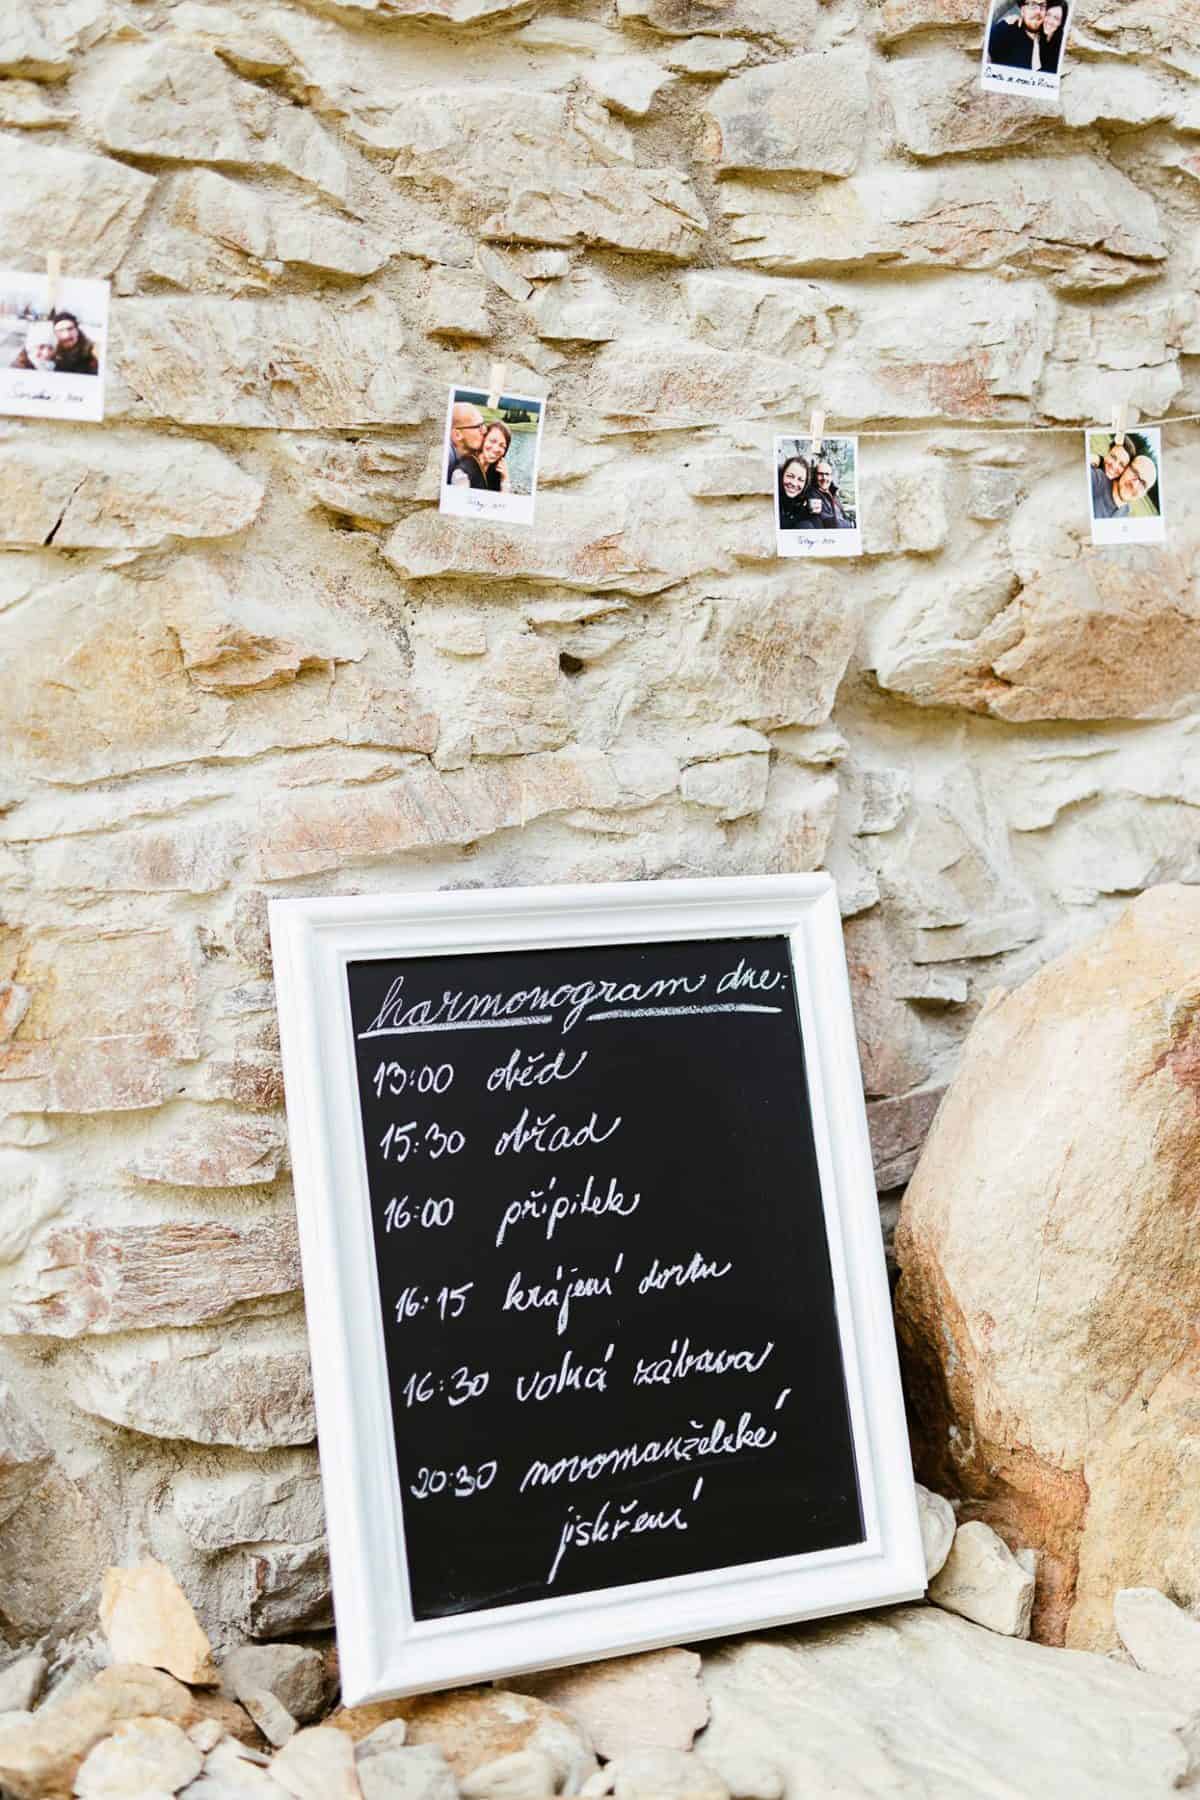 harmonogram dne:
13:00 oběd
15:30 obřad
16:00 přípitek
16:15 krájení dortu
16:30 volná zábava
20:30 novomanželské
jiskření